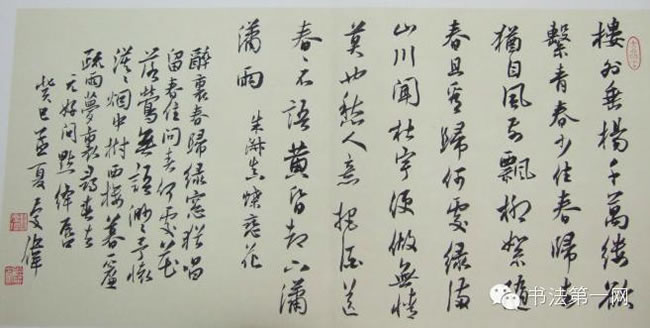 樓外垂楊千萬縷欲
繫青春少住春歸去
猶自風前飄柳絮隨
春且看歸何處綠滿
山川聞杜宇便做無情
莫也愁人意把酒送
春不語黃昏却下瀟
瀟雨 朱淑真蝶戀花
醉裏春歸綠窗猶唱
留春住問春何處花
落鶯無語渺渺予懷
漠漠烟中樹西樓暮一簾
疏雨夢裏尋春去
元好問點絳唇
癸巳孟夏偉
书法第一网